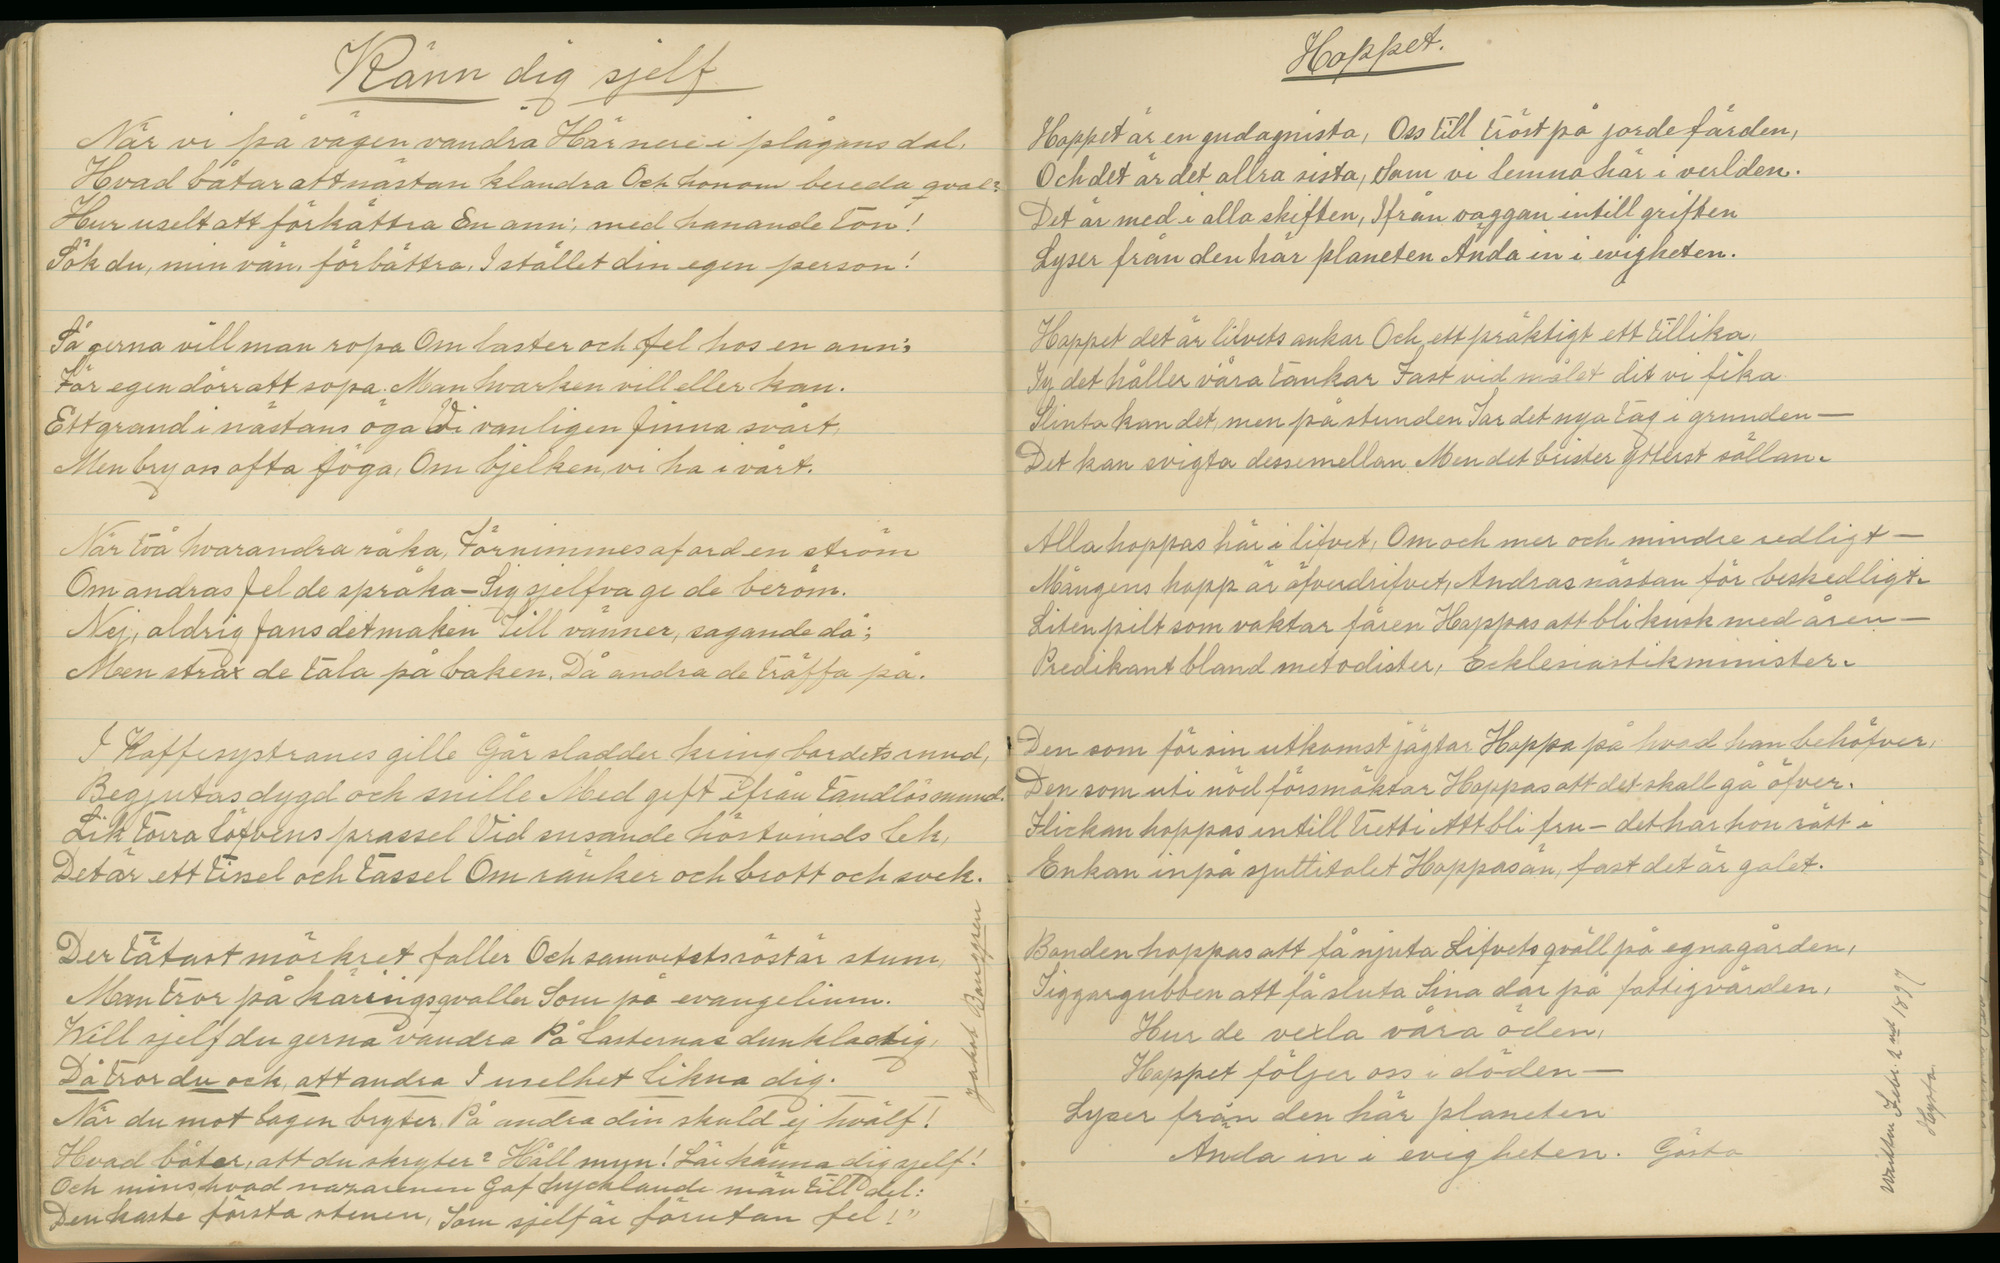 Känn dig sjelf
När vi på vägen vandra Här nere i plågans dal,
Hvad båtar att nästan klandra Och honom bereda qval?
Hur uselt att förkättra En ann; med hånande ton!
Sök du, min vän, förbättra, I stället din egen person!
Så gerna vill man ropa Om laster och fel hos en ann;
För egen dörr att sopa Man hvarken vill eller kan.
Ett grand i nästans öga Vi vanligen finna svårt,
Men bry oss ofta föga, Om bjelken, vi ha i vårt.
När två hvarandra råka, Förnimmes af ord en ström
Om andras fel de språka – Sig sjelfva ge de beröm.
Nej, aldrig fans det maken Till vänner, sågande då;
Men strax de tala på baken, Då andra de träffa på.
I Kaffesystrarnes gille Går sladder kring bordets rund,
Begjutas dygd och snille Med gift ifrån tandlös mund.
Lik torra löfvens prassel Vid susande höstvinds lek,
Det är ett tissel och tassel Om ränker och brott och svek.
Der tätast mörkret faller Och samvetets röst är stum,
Man tror på käringsqvaller Som på evangelium.
Will sjelf du gerna vandra På lasternas dunkla stig,
Då tror du ock, att andra I uselhet likna dig.
När du mot lagen bryter, På andra din skuld ej hvälf!
Hvad båtar, att du skryter? Håll mun! Lär känna dig sjelf!
Och mins hvad nazarenen Gaf hycklande män till del:
Den kaste första stenen, Som sjelf är förutan fel!"
Jakob Bonggren
Hoppet.
Hoppet är en gudagnista, Oss till tröst på jordefärden,
Och det är det allra sista, Som vi lemna här i verlden.
Det är med i alla skiften, Ifrån vaggan intill griften
Lyser från den här planeten Ända in i evigheten.
Hoppet det är lifvets ankar Och ett präktigt ett tillika,
Ty det håller våra tankar Fast vid målet dit vi fika
Slinta kan det, men på stunden Tar det nya tag i grunden —
Det kan svigta dessemellan Men det brister ytterst sällan.
Alla hoppas här i lifvet, Om och mer och mindre redligt —
Mångens hopp är öfverdrifvet, Andras nästan för beskedligt.
Liten pilt som vaktar fåren Hoppas att bli kusk med åren —
Predikant bland metodister, Ecklesiastikminister.
Den som för sin utkomst jägtar Hoppa på hvad han behöfver,
Den som uti nöd försmäktar Hoppas att det skall gå öfver.
Flickan hoppas intill tretti Att bli fru – det har hon rätt i
Enkan inpå sjuttitalet Hoppas än, fast det är galet.
Bonden hoppas att få njuta Lifvets qväll på egna gården,
Tiggargubben att få sluta Sina dar på fattigvården,
Hur de vexla våra öden,
Hoppet följer oss i döden —
Lyser från den här planeten
Ända in i evigheten. Gösta
Written Febr. 2nd 1897